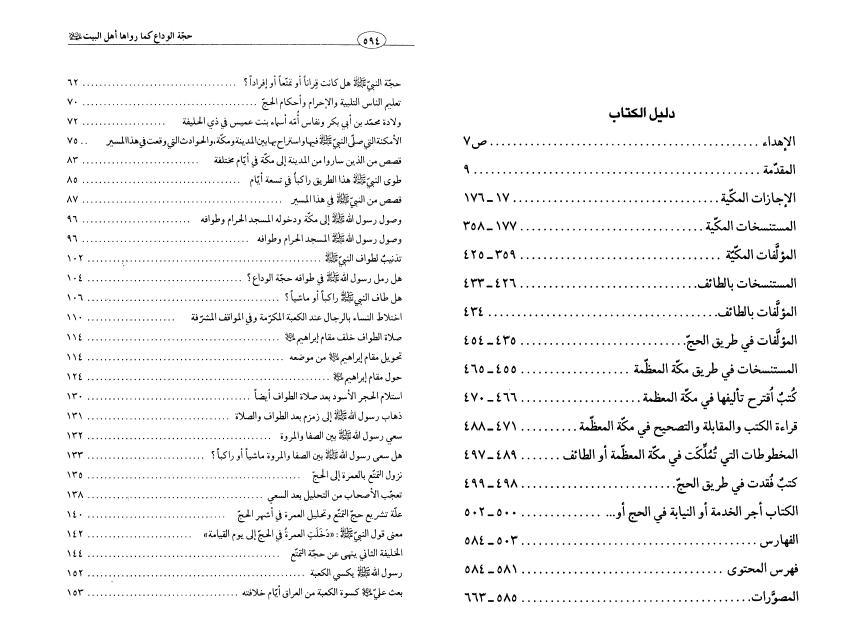 دليل الكتاب
الإهداء ............ ص٧
المقدّمة ............ ٩
الإجازات المكّية ............ ١٧ ــ ١٧٦
المستنسخات المكّية ............ ١٧٧ ــ ٣٥٨
المؤلَّفات المكيّة ............ ٣٥٩ ــ ٤٢٥
المستنسخات بالطائف ............ ٤٢٦ ــ ٤٣٣
المؤلَّفات بالطائف ............ ٤٣٤
المؤلَّفات في طريق الحجّ ............ ٤٣٥ ــ ٤٥٤
المستنسخات في طريق مكّة المعظّمة ............ ٤٥٥ ــ ٤٦٥
كُتبٌ اُقترح تأليفها في مكة المعظمة ............ ٤٦٦ ــ ٤٧٠
قراءة الكتب والمقابلة والتصحيح في مكة المعظّمة ............ ٤٧١ ــ ٤٨٨
المخطوطات التي تُمُلِّكَت في مكّة المعظّمة أو الطائف ....... ٤٨٩ ــ ٤٩٧
كتبٌ فُقدت في طريق الحجّ ............ ٤٩٨ ــ ٤٩٩
الكتاب أجر الخدمة أو النيابة في الحج أو... ............ ٥٠٠ ــ ٥٠٢
الفهارس ............ ٥٠٣ ــ ٥٨٤
فهرس المحتوى ............ ٥٨١ ــ ٥٨٤
المصوَّرات ............ ٥٨٥ ــ ٦٦٣
٥٩٤ حجّة الوداع كما رواها أهل البيت ﷺ
حجّة النبيّ ﷺ هل كانت قِراناً أو تمتّعاً أو إفراداً؟ ............ ٦٢
تعليم الناس التلبية والإحرام وأحكام الحجّ ............ ٧٠
ولادة محمّد بن أبي بكر ونفاس أُمّه أسماء بنت عميس في ذي الحليفة ............ ٧٢
الأمكنة التي صلّى النبيّ ﷺ فيها واستراح بها بين المدينة ومكّة، والحوادث التي وقعت في هذا المسير .. ٧٥
قصص من الذين ساروا من المدينة إلى مكّة في أيّام مختلفة ............ ٨٣
طوى النبيّ ﷺ هذا الطريق راكباً في تسعة أيّام ............ ٨٥
قصص من النبيّ ﷺ في هذا المسير ............ ٨٧
وصول رسول الله ﷺ إلى مكّة ودخوله المسجد الحرام وطوافه ............ ٩٦
وصول رسول الله ﷺ المسجد الحرام وطوافه ............ ٩٦
تذنيبٌ لطواف النبيّ ﷺ ............ ١٠٢
هل رمل رسول الله ﷺ في طوافه حجّة الوداع؟ ............ ١٠٤
هل طاف النبيّ ﷺ راكباً أو ماشياً؟ ............ ١٠٦
اختلاط النساء بالرجال عند الكعبة المكرّمة وفي المواقف المشرّفة ............ ١١٠
صلاة الطواف خلف مقام إبراهيم ............ ١١٤
تحويل مقام إبراهيم من موضعه ............ ١١٤
حول مقام إبراهيم ............ ١٢٤
استلام الحجر الأسود بعد صلاة الطواف أيضاً ............ ١٣٠
ذهاب رسول الله ﷺ إلى زمزم بعد الطواف والصلاة ............ ١٣١
سعي رسول الله ﷺ بين الصفا والمروة ............ ١٣٢
هل سعى رسول الله ﷺ بين الصفا والمروة ماشياً أو راكباً؟ ............ ١٣٣
نزول التمتّع بالعمرة إلى الحجّ ............ ١٣٥
تعجّب الأصحاب من التحليل بعد السعي ............ ١٣٨
علّة تشريع حجّ التمتّع وتحليل العمرة في أشهر الحجّ ............ ١٤٠
معنى قول النبيّ ﷺ: «دَخَلَتِ العمرةُ في الحجّ إلى يوم القيامة» ............ ١٤٢
الخليفة الثاني ينهى عن حجّة التمتّع ............ ١٤٤
رسول الله ﷺ يكسي الكعبة ............ ١٥٢
بعث عليّ كسوة الكعبة من العراق أيّام خلافته ............ ١٥٣